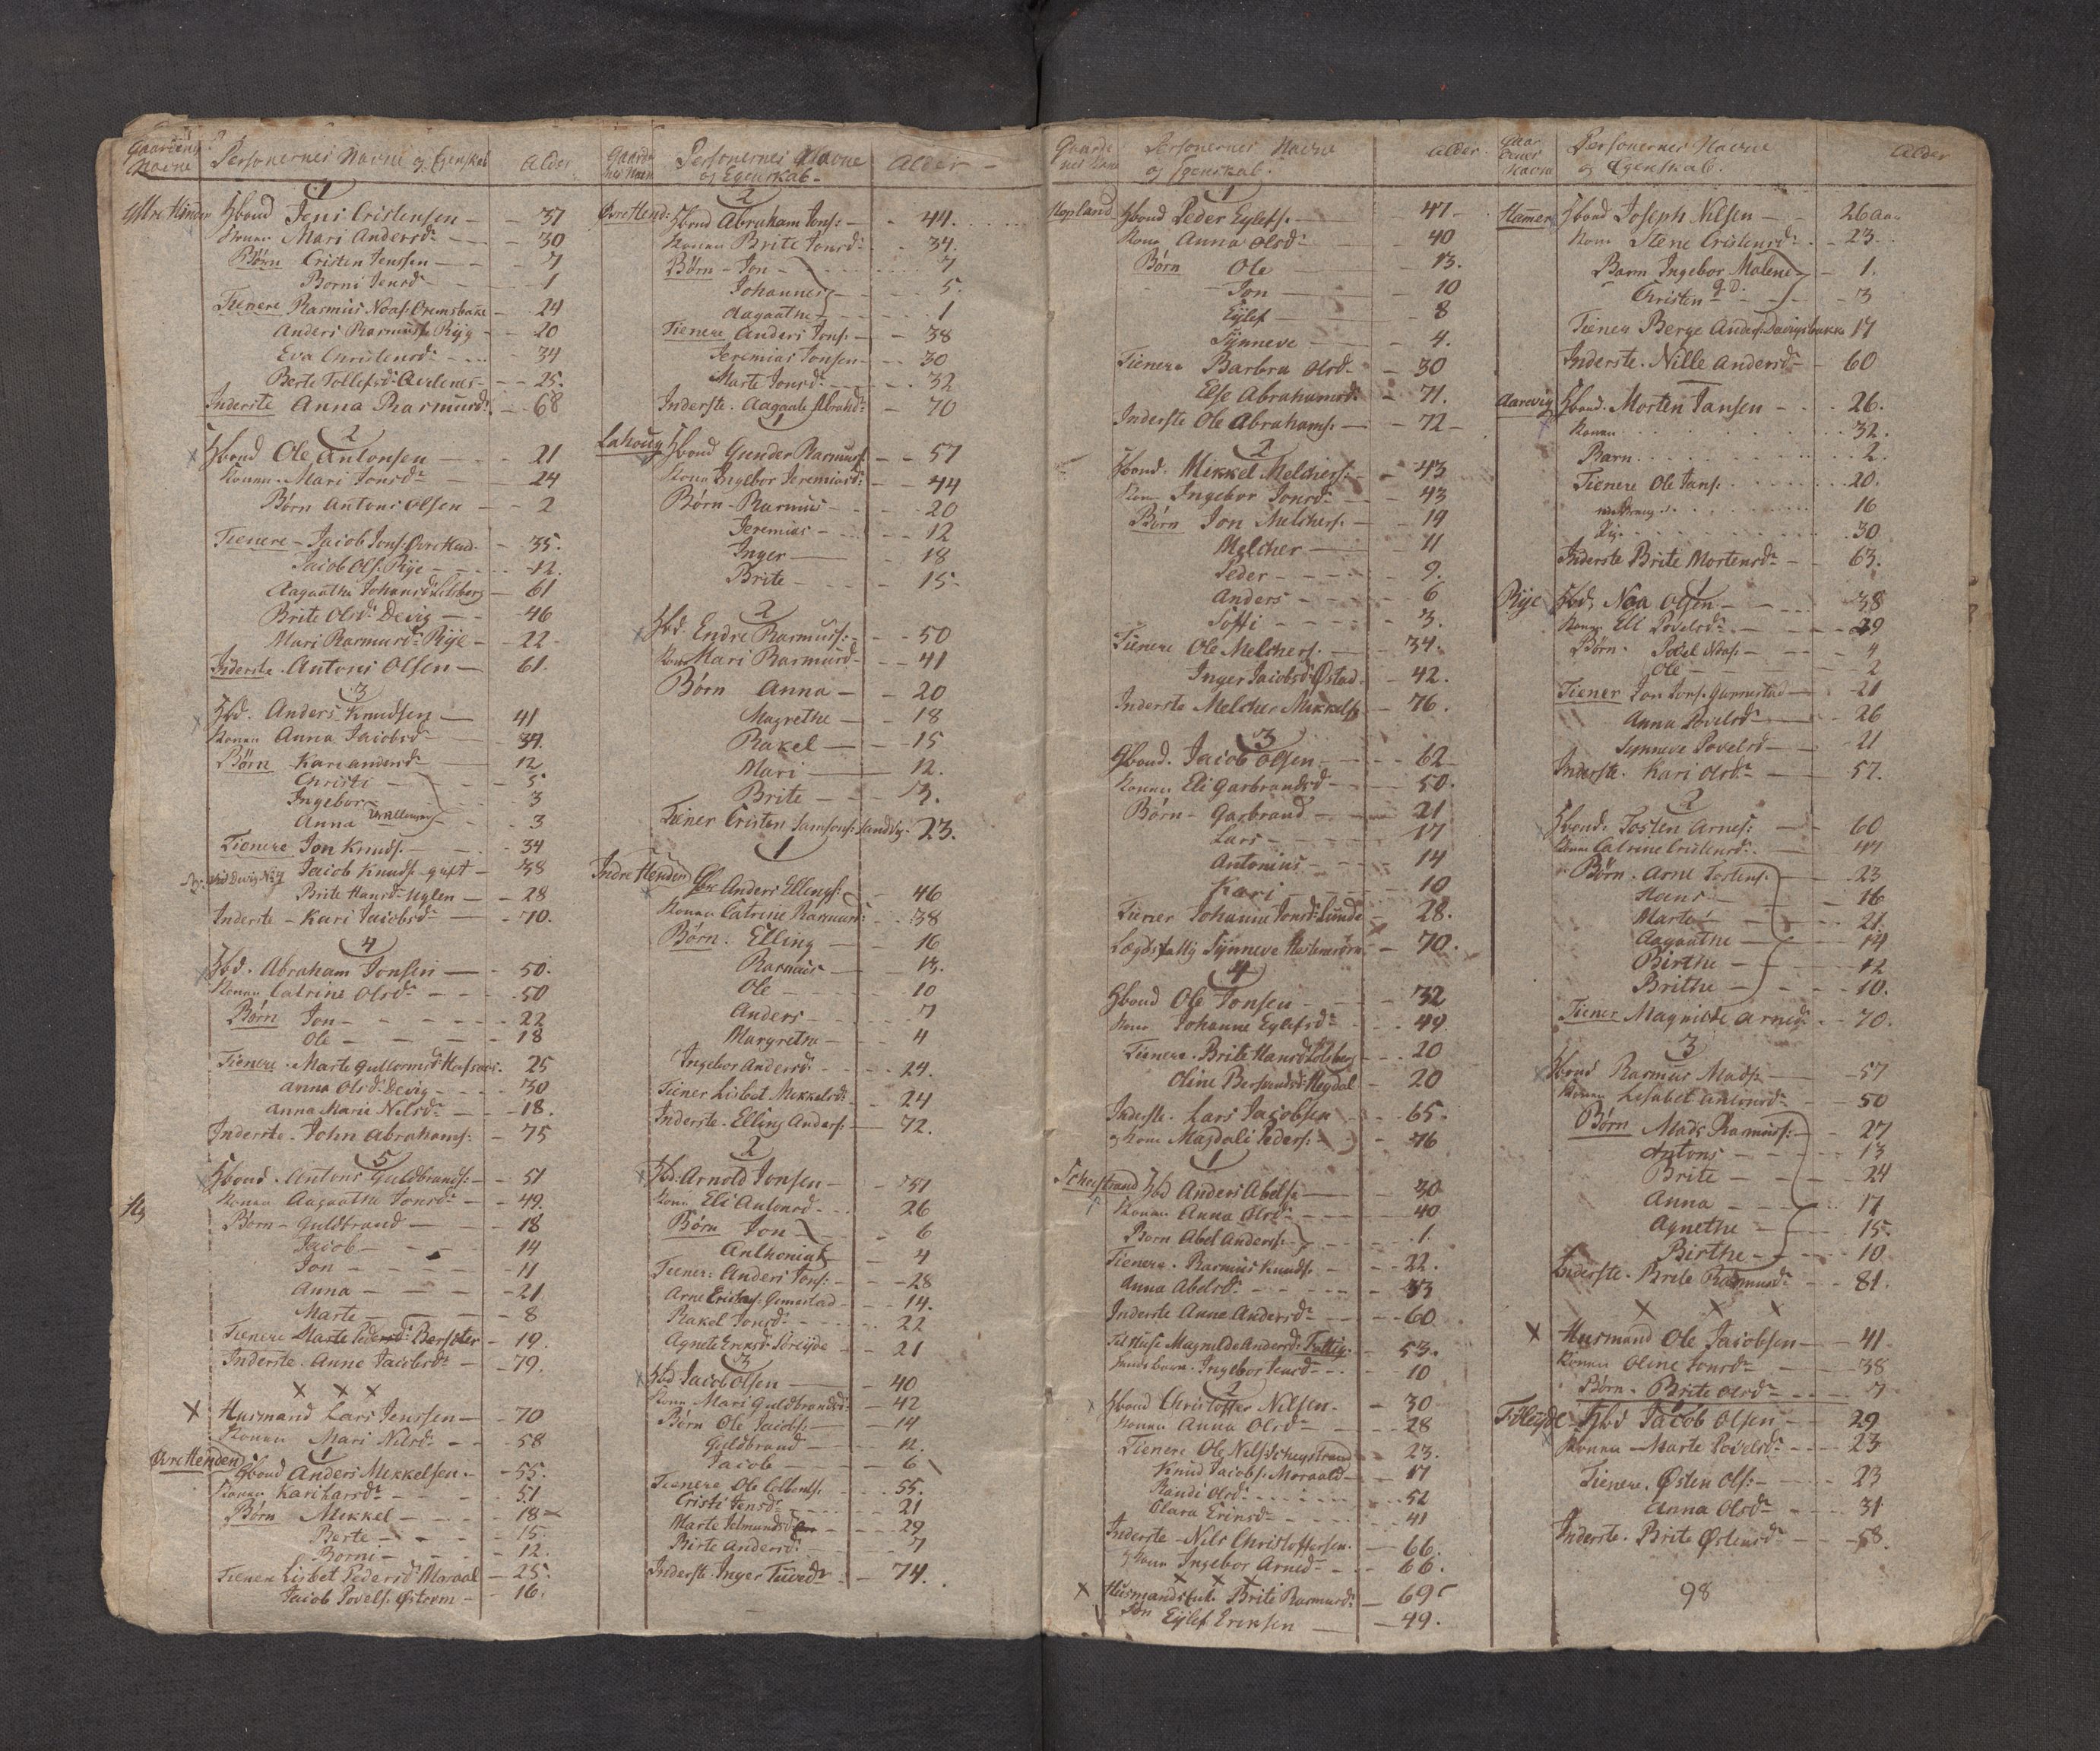 Gaardens Navne
Personernes Navne og Egenskab
Alder
1
Ytre Hinden Hbond Jens Cristensen - 37
Konen Mari Andersd: - 30
Børn Cristen Jenssen - 7
Borni Jensd: - 1
Tienere Rasmus Noas: - 24
Anders Rasmuss: Rÿg - 20
Eva Christensd: - 34
Berte Tollefsd: - 25.
Inderste Anna Rasmusd: - 68
2
Hbond Ole Antonsen - 21
Konen Mari Jonsd: - 24
Børn Antoni Olsen - 2
Tienere - Jacob Jons: - 35.
Jacob Ols: Rÿe - 12.
Aagaathe Johansd: - 61
Brite Olsd: Devig - 46
Mari Rasmusd: Rÿe - 22
Inderste Antoni Olsen - 61.
3
Hbd. Anders Knudsen - 41
Konen Anna Jacobsd: - 34.
Børn Kari Andersd: - 12
Christi - 5
Ingebor - 3
Anna Tvillinger - 3
Tienere Jon Knuds: - 34
Jacob Knuds: gift - 38
Brite Hansd: Uglen - 28
Inderste - Kari Jacobsd: - 70.
4
Hbd. Abraham Jonsen - 50.
Konen Catrine Olsd: - 50
Børn Jon - 22
Ole - 18
Tienere Marte Gullormsd: - 25
Anna Olsd: Devig - 30
Anna Marie Nilsd: - 18.
Inderste John Abrahams: - 75
5
Hbond Antoni Guldbrands: - 51
Konen Aagaathe Jonsd: - 49.
Børn - Guldbrand - 18
Jacob - 14
Jon - 11
Anna - 21
Marte - 8
Tienere Marte Pedersd: - 19.
Inderste Anne Jacobsd: - 79.
x x x
x Husmand Lars Jenssen - 70
Konen Mari Nilsd: - 58
1
Øvre Henden Hbond Anders Mekkelsen - 55.
Konen Kari Larsd: - 51
Børn Mekkel - 18
Berte - 15
Borni - 12.
Tienere Lisbet Pedersd: Moraal - 25.
Jacob Povels: - 16.
Gaardenes Navn
Personernes Navne og Egenskab
Alder
2
Øvre Hend: Hbond Abraham Jons: - 44.
Konen Brite Jonsd: - 34.
Børn - Jon - 7
Johannes - 5.
Aagaathe - 1
Tienere Anders Jons: - 38
Jeremias Jonsen - 30
Marte Jonsd: - 32
Inderste Aagaate Abrahd: - 70
1
Lahoug Hbond Gunder Rasmuss: - 57
Kona Ingebor Jeremiasd: - 44
Børn - Rasmus - 20
Jeremias - 12
Inger - 18
Brite - 15
2
Hbd. Endre Rasmuss: - 50
Kona Mari Rasmusd: - 41
Børn Anna - 20
Magrethe - 18
Rakel - 15
Mari - 12.
Brite - 3.
Tiener Cristen Samsons: Sandvig - 23.
1
Indre Henden Hbd Anders Ellings: - 46
Konen Catrine Rasmusd: - 38
Børn. Elling - 16
Rasmus - 13.
Ole - 10
Anders - 7
Margrethe - 4
Ingebor Andersd: - 24.
Tiener Lisbet Mekkelsd: - 24
Inderste Elling Anders: - 72.
2
Hbd. Arnold Jonsen - 37
Kona Eli Antonsd: - 26
Børn Jon - 6
Anthoni - 4
Tiener: Anders Jons: - 28
Arne - 14.
Rakel Jonsd: - 22
Agnete - 21
3
Hbd Jacob Olsen - 40
Kona Mari Guldbrandsd: - 42
Børn Ole Jacobs: - 14
Guldbrand - 12.
Jacob - 6
Tienere Ole - 55.
Cristi Jensd: - 21
Marte - 29
Birte Andersd: - 7
Inderste Inger - 74.
Gaardenes Navn
Personernes Navne og Egenskab.
Alder
1
Hopland Hbond Peder Eÿlefs: - 47
Kone Anna Olsd: - 40
Børn Ole - 13.
Jon - 10
Eÿlef - 8
Sÿnneve - 4.
Tienere Barbra Olsd: - 30
Else Abrahamsd: - 71.
Inderste Ole Abrahams: - 72
2
Hbond. Mikkel Melchers: - 43
Kone Ingebor Jonsd: - 43
Børn Jon Melchers: - 14
Melcher - 11
Peder - 9.
Anders - 6
Soffi - 3.
Tienere Ole Melchers: - 34.
Inger Jacobsd: Østad. - 42.
Inderste Melcher Mekkels: - 76.
3
Hbond. Jacob Olsen - 62
Konen Eli Garbrandsd: - 50.
Børn - Garbrand - 21
Lars - 17
Antonius - 14
Kari - 10
Tiener Johanne Jonsd: Lunde - 28.
Lægdsfattig Sÿnneve - 70.
4
Hbond Ole Jonsen - 32
Kone Johanne Eÿlefsd: - 49
Tienere Brite Hansd: - 20
Oline - 20
Inderste Lars Jacobsen - 65.
og Kone Magdali Peders: - 76
1
Hbd Anders Abels: - 30
Konen Anna Olsd: - 40
Børn Abel Anders: - 1
Tienere Rasmus Knuds: - 22.
Anna Abelsd: - 33
Inderste Anne Andersd: - 60
Magnilde Andersd: Fattig - 53.
Ingebor Jensd: - 10
2
Hbond Christoffer Nilsen - 30
Konen Anna Olsd: - 28
Tienere Ole Nils: - 23.
Knud Jacobs: Moraald - 17
Randi Olsd: - 52
Clara Erinsd: - 41
Inderste Nils Christoffersen - 66.
Ingebor Arnesd: - 66.
x x x
x Husmandsenk. Brite Rasmusd: - 69
Søn Eÿlef Ericksen - 49.
Gaardenes Navne
Personernes Navne og Egenskab.
Alder
Hamer Hbond Joseph Nilsen - 26 aar
Kone Stene Cristensd: - 23.
Barn Ingebor Malene - 1.
Christen - 3
Tiener Berge - 17
Inderste Nille Andersd: - 60
Aarevig Hbond. Morten Jansen - 26.
Konen - 32.
Barn - 2.
Tienere Ole Jans: - 20.
16
30
Inderste Brite Mortensd: - 63.
1
Rÿe Hbd. Noa Olsen - 38
Konen Eli Povelsd: - 29
Børn Povel Noas: - 4
Ole - 2
Tiener Jon Jons: - 21
Anna Povelsd: - 26
Sÿnneve Povelsd: - 21
Inderste Kari Olsd: - 57.
2
Hbond. Tosten Arnes: - 60
Konen Catrine Cristensd: - 47
Børn. Arne Tostens: - 23
Hans - 16
Marte - 21.
Aagaathe - 14
Birthe - 12
Brithe - 10.
Tiener Magnilde Arnesd: - 70.
3
Hbond Rasmus Mads: - 57
Konen Lisabet Antonsd: - 50
Børn Mads Rasmuss: - 27
Antoni - 13
Brite - 24
Anna - 17
Agnethe - 15.
Birthe - 10
Inderste Brite Rasmusd: - 81.
x x x
x Husmand Ole Jacobsen - 41
Konen Oline Jonsd: - 38
Børn. Brite Olsd: - 7
Hbd Jacob Olsen - 29
Konen Marte Povelsd: - 23
Tienere. Østen Ols: - 23
Anna Olsd: - 31
Inderste. Brite Østensd: - 58.
98